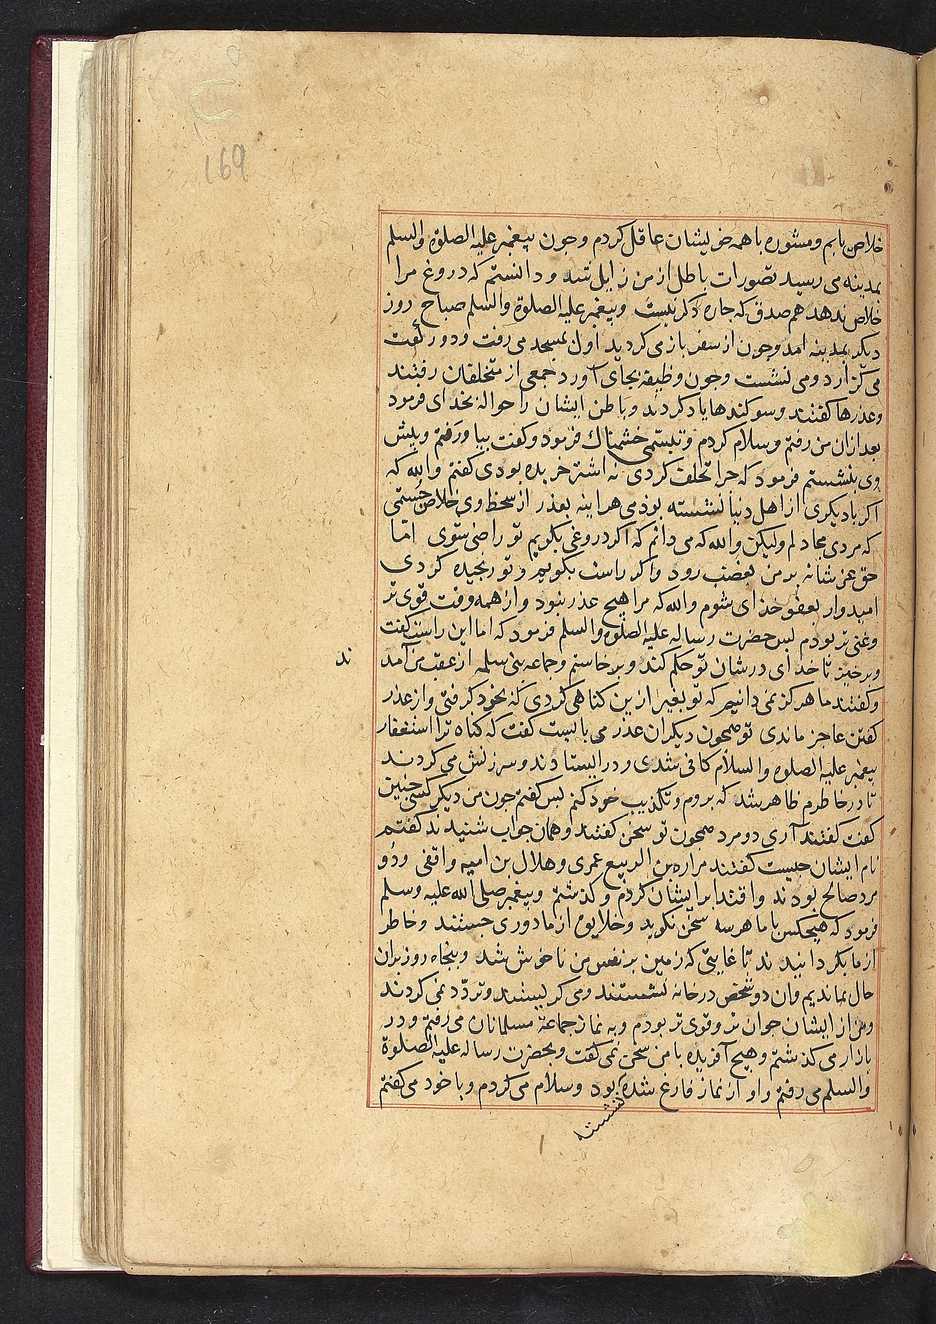 169
خلاص یابم و مشوره با همه خویشان عاقل کردم و چون پیغمبر علیه الصلوة والسلم
بمدینه می رسید تصورات باطل از من زایل شد و دانستم که دروغ مرا
خلاص ندهد هم صدق که چاره دکر نیست و پیغمبر علیه الصلوة والسلم صباح روز
دیکر بمدینه امد و چون از سفر باز می کردید اول بمسجد می رفت و دو رکعت
می کزارد و می نشست و چون وظیفه بجای آورد جمعی از متخلفان رفتند
و عذرها کفتند و سوکندها یاد کردند و باطن ایشان را حواله بخدای فرمود
بعد ازان من رفتم و سلام کردم و تبسمی خشمناک فرمود و کفت بیا و رفتم و پیش
وی بنشستم فرمود که چرا تخلف کردی نه اشتر خریده بودی کفتم والله که
اکر با دیکری از اهل دنیا نشسته بودمی هراینه بعذر از سخط وی خلاص جستمی
که مردی مجادلم ولیکن والله که می دانم که اکر دروغی بکویم تو راضی شوی اما
حق عز شانه بر من بغضب رود و اکر راست بکویم و تو رنجیده کردی
امیدوار بعفو خدای شوم والله که مرا هیچ عذر نبود و از همه وقت قوی تر
و غنی تر بودم پس حضرت رساله علیه الصلوة والسلم فرمود که اما این راست کفت
و برخیز تا خدای در شان تو حکم کند و برخاستم و جماعه بنی سلمه از عقب من آمد
ند
و کفتند ما هرکز نمی دانیم که تو بغیر ازین کناهی کردی که بخود کرفتی و از عذر
کفتن عاجز ماندی تو همچون دیکران عذر می بایست کفت که کناه ترا استغفار
پیغمبر علیه الصلوة والسلام کافی شدی و در ایستادند و سرزنش می کردند
تا در خاطرم ظاهر شد که بروم و تکذیب خود کنم پس کفتم چون من دیکر کسی چنین
کفت کفتند آری دو مرد همچون تو سخن کفتند و همان جواب شنیدند کفتم
نام ایشان چیست کفتند مراره بن الربیع عمری و هلال بن امیه واقفی و دو
مرد صالح بودند و اقتدا بایشان کردم و کذشتم و پیغمبر صلی الله علیه وسلم
فرمود که هیچکس با ما هر سه سخن نکوید و خلایق از ما دوری جستند و خاطر
از ما بکردانیدند تا غایتی که زمین بر نفس من ناخوش شد و پنجاه روز بران
حال بماندیم و ان دو شخص در خانه نشستند و می کریستند و تردد نمی کردند
و من از ایشان جوان تر و قوی تر بودم و به نماز جماعة مسلمانان می رفتم و در
بازار می کذشتم و هیچ آفریده با من سخن نمی کفت و بحضرت رساله علیه الصلوة
والسلم می رفتم و او از نماز فارغ شده بود و سلام می کردم و با خود می کفتم
نشسته